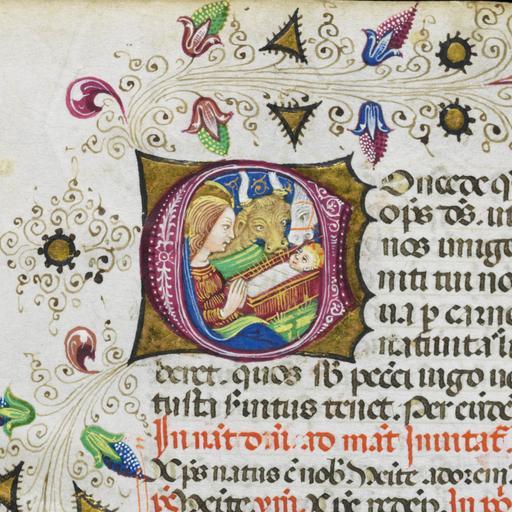 Concede q
op̄s ds̄. ut
nos unige
niti tui no
ua p carne
natiuitas li
beret. quos sb̄ pecc̄i iugo ue
tusta s̄uitus tenet. Per eūde
In nat̄ dn̄i. ad mat̄ Inuitat̄.
Xp̄s natus ē nob̄. Venite adorem
p̄s Venite. ym̄. Xp̄e redēp. In